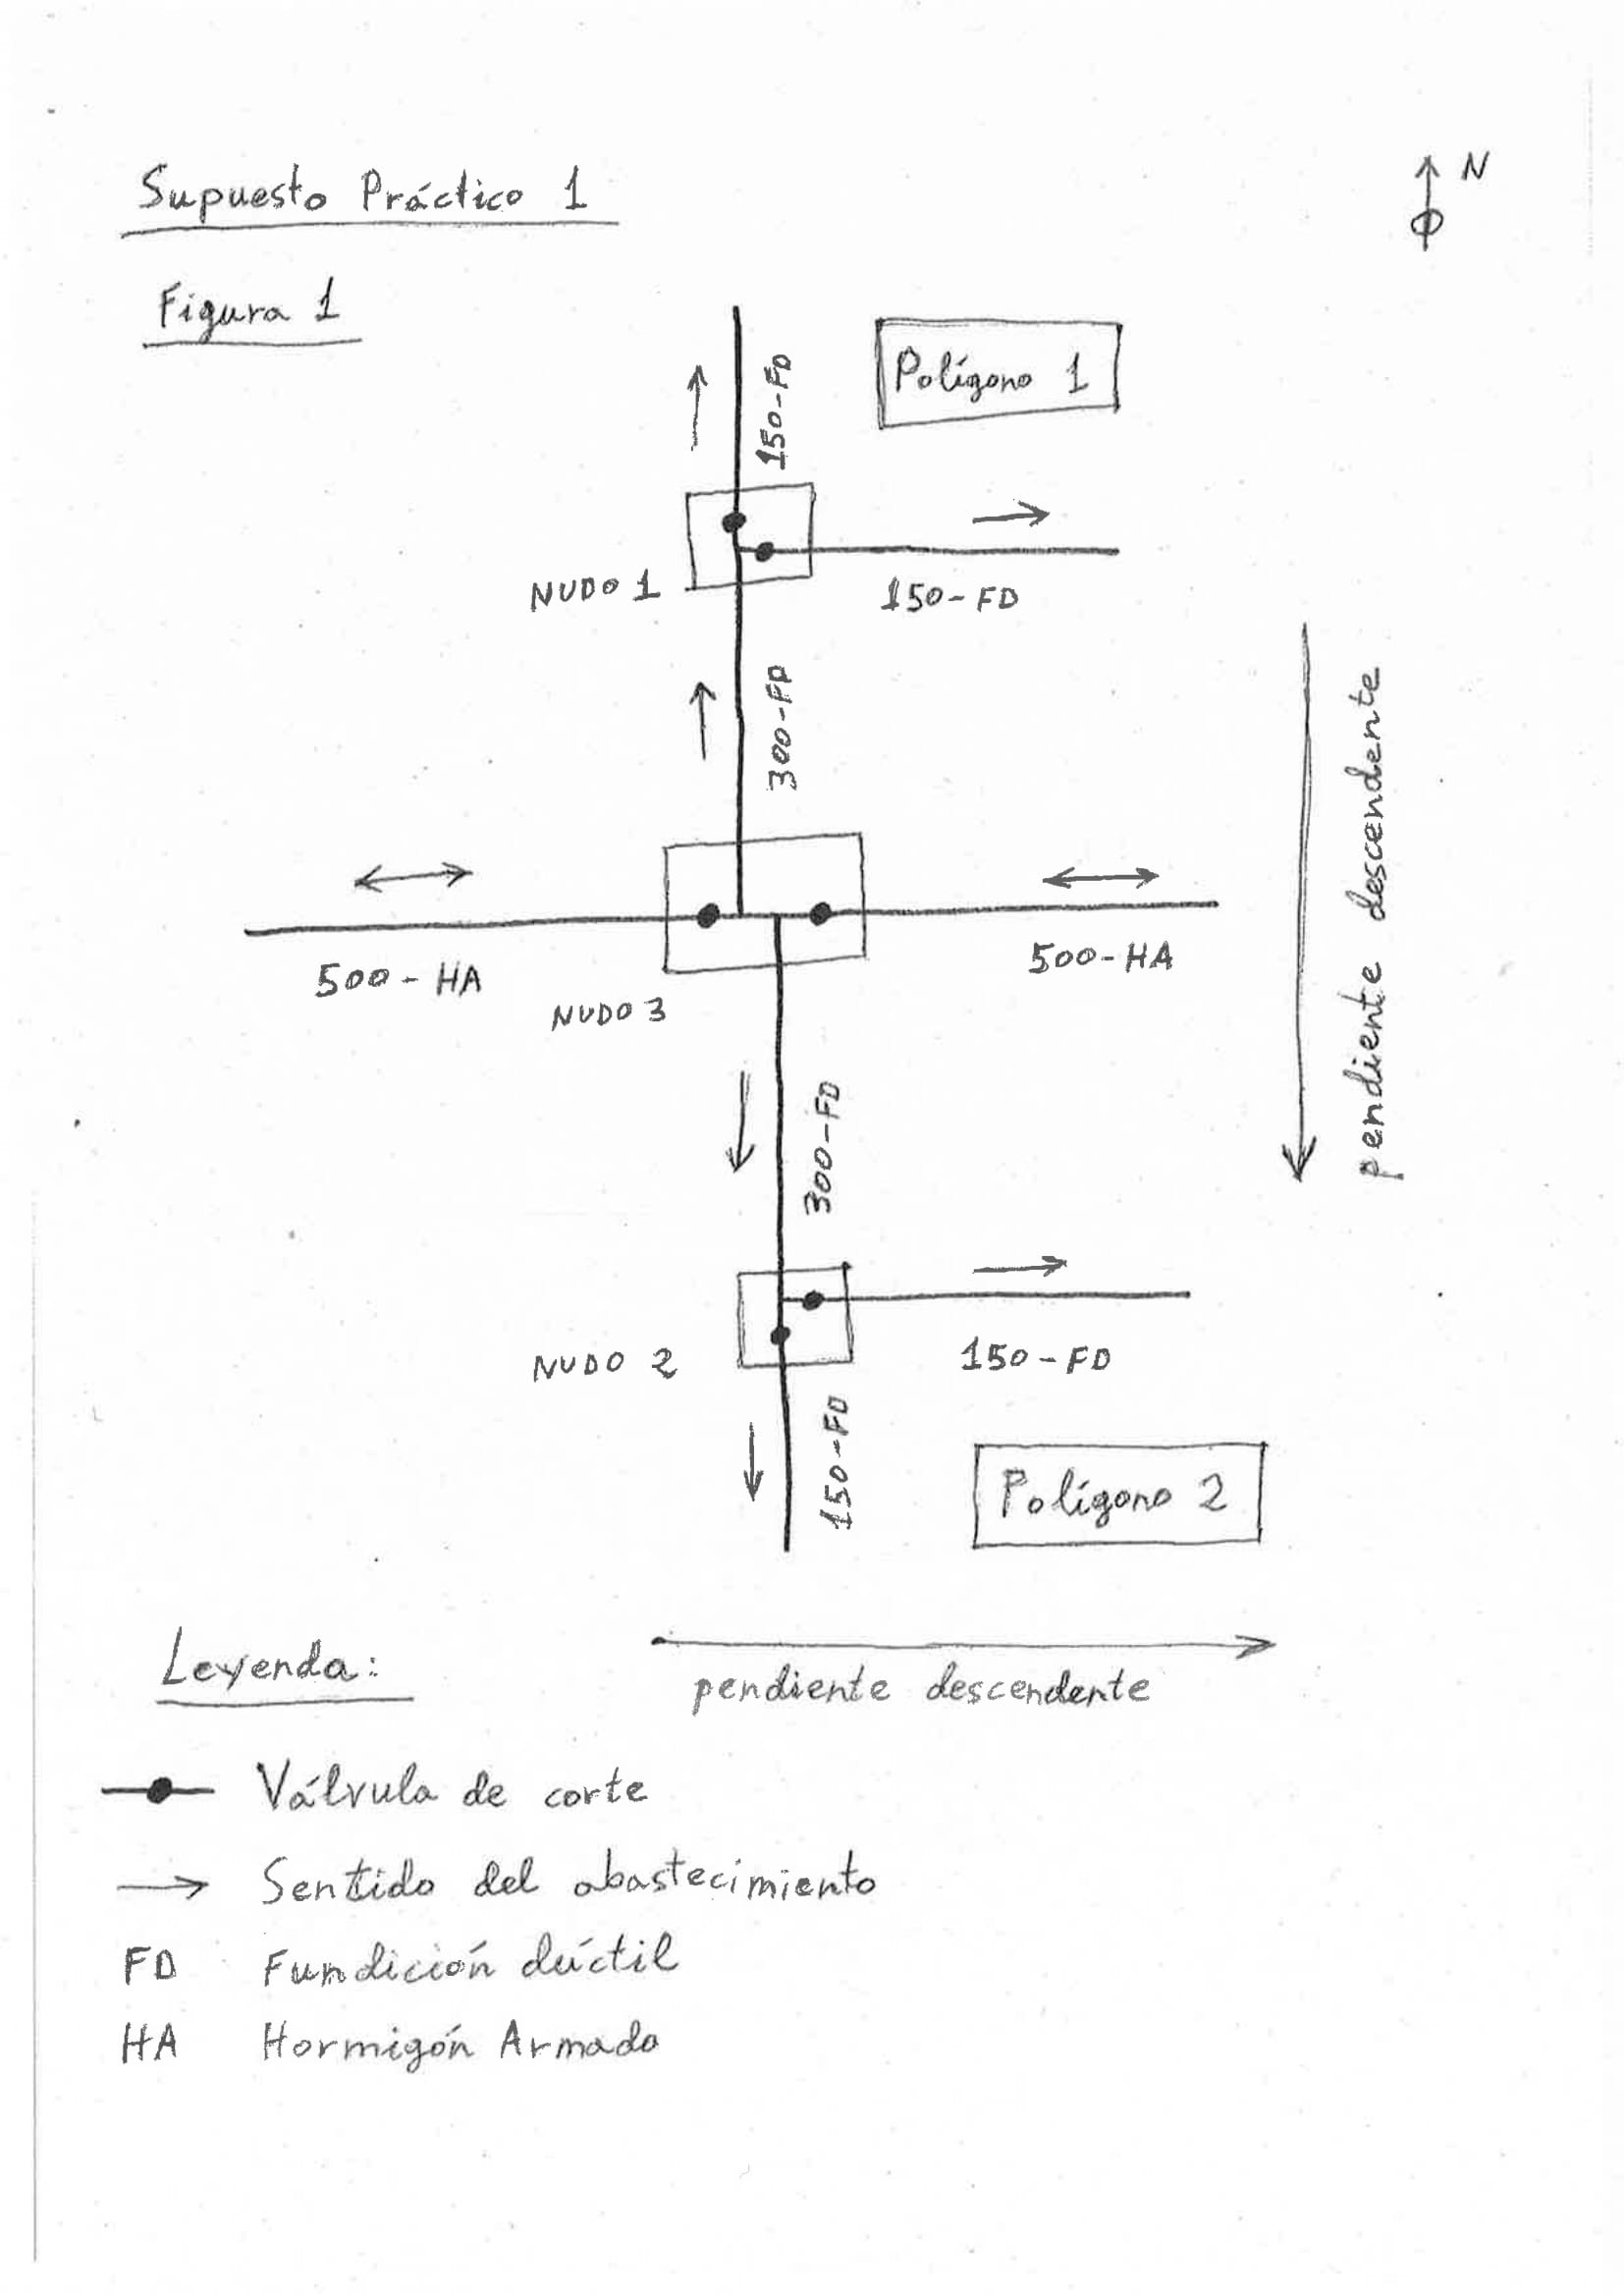 Supuesto Práctico 1
N
Figura 1
150-FD
Polígono 1
NUDO 1
150-FD
300-FD
pendiente descendente
500-HA
500-HA
NUDO 3
300-FD
NUDO 2
150-FD
150-FD
Polígono 2
Leyenda:
pendiente descendente
Válvula de corte
Sentido del abastecimiento
FD Fundición dúctil
HA Hormigón Armado